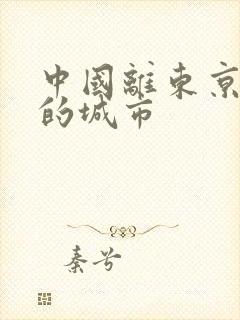 中國離東京
的城市
秦兮